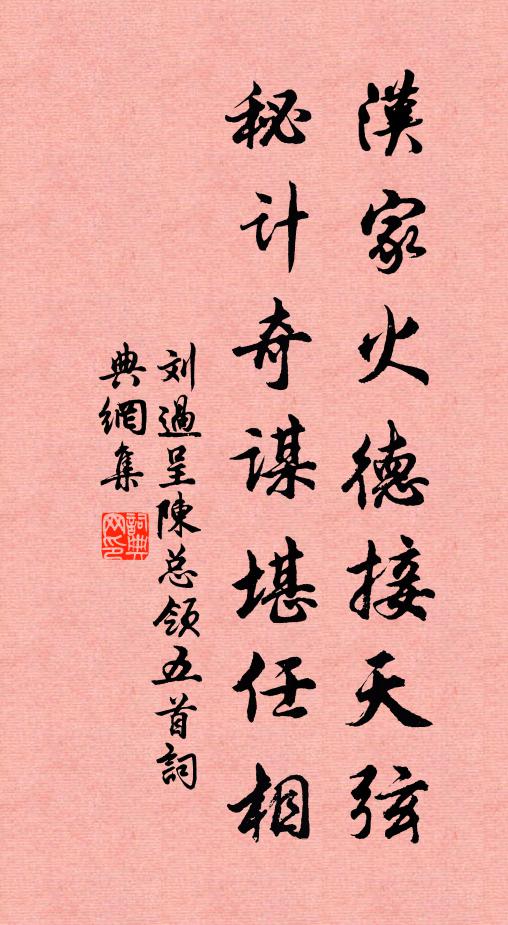 漢家火德接天弦
秘计奇謀堪任相
刘過呈陳总领五首詞
典網集
詞典网印